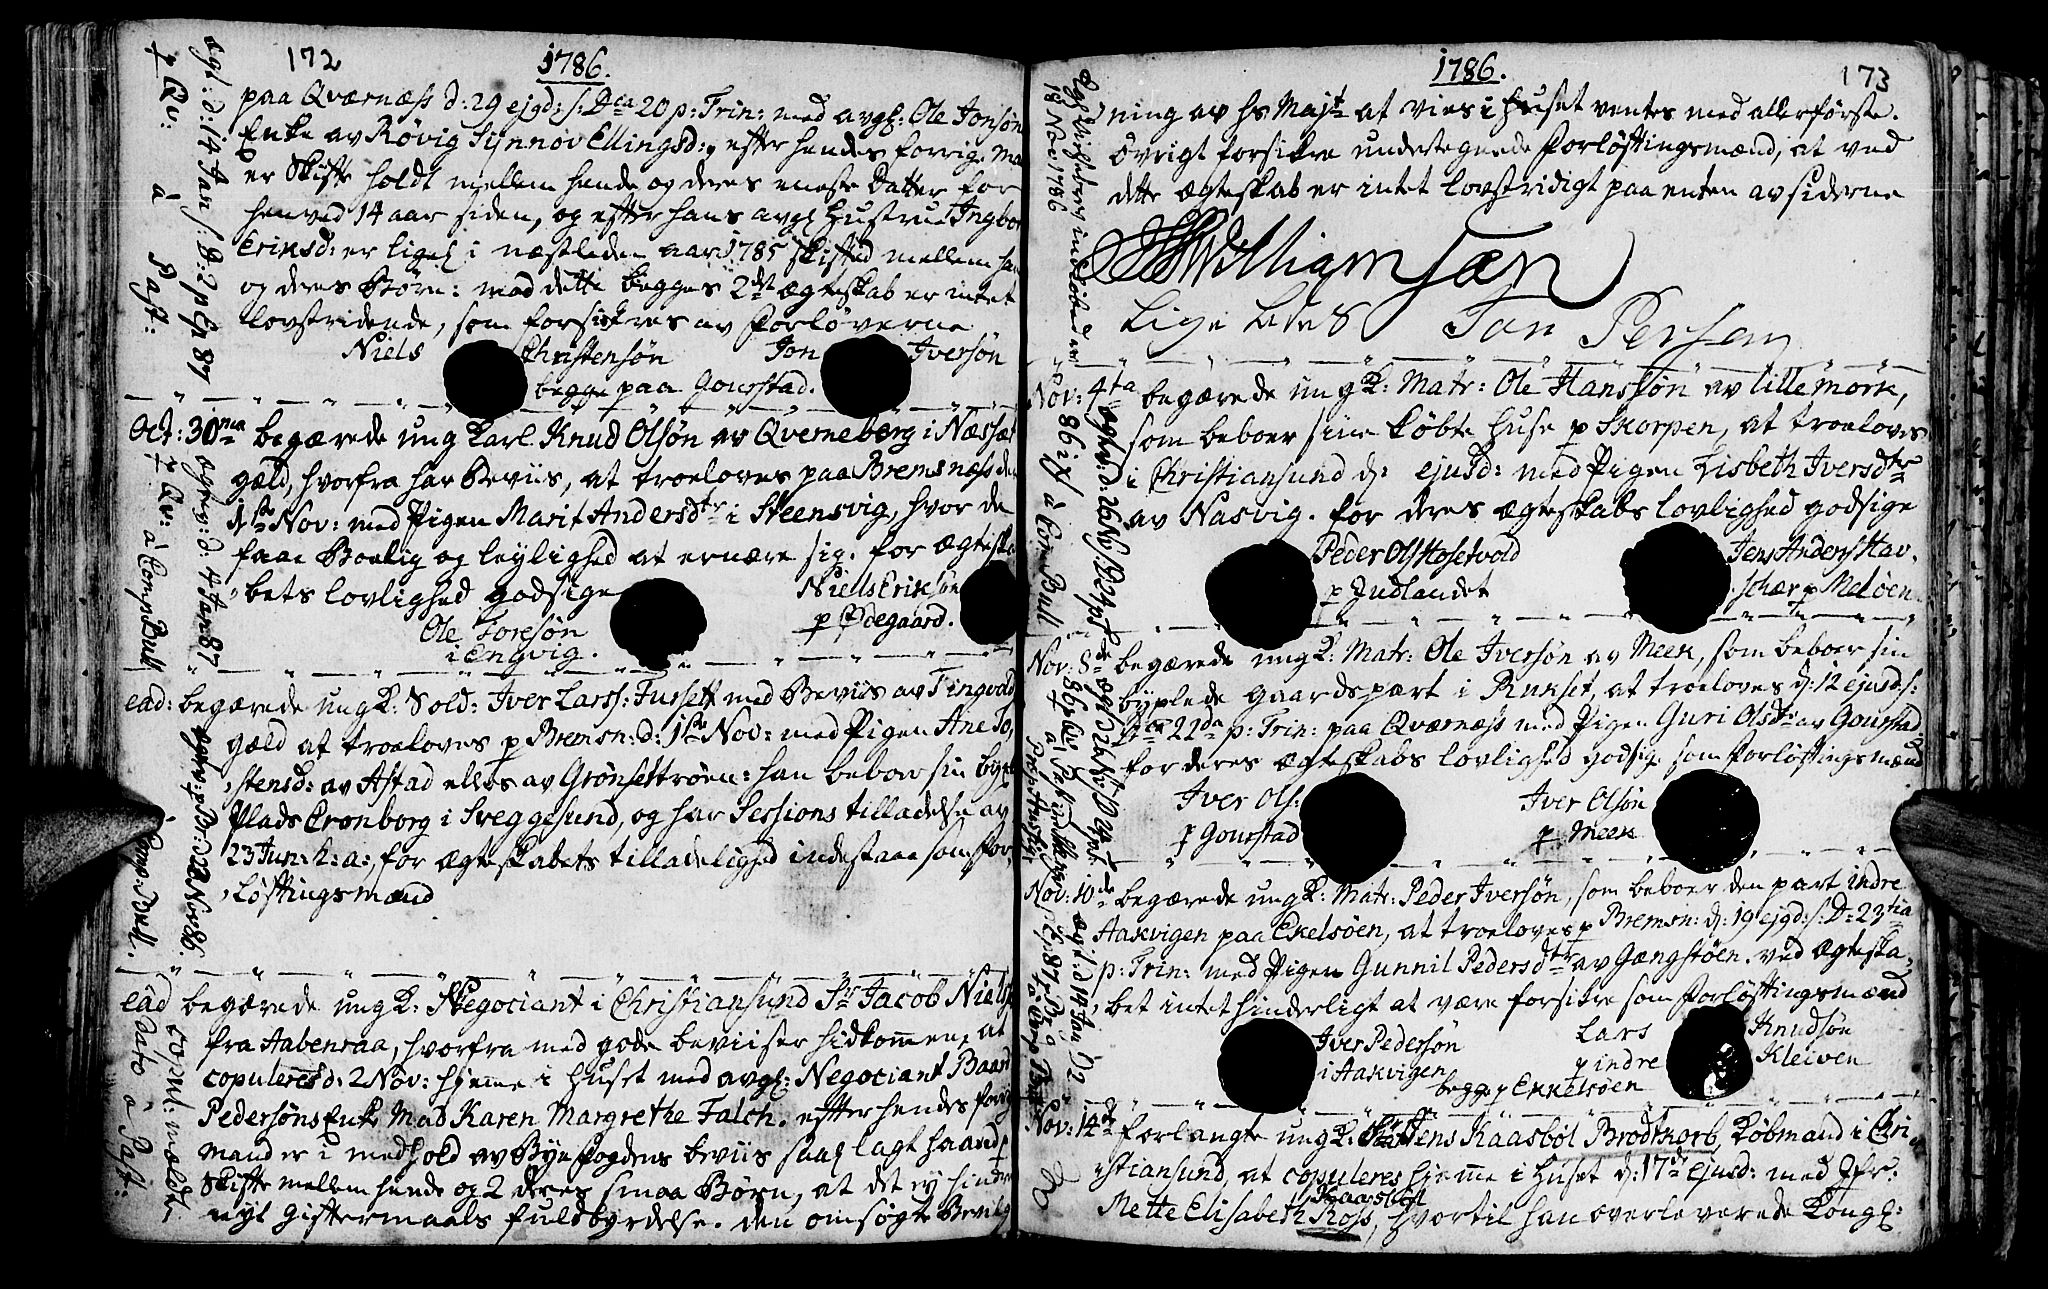 172
1786.
paa Qværnæss d: 29 ejgd: /: Dca 20 p: Trin: med avgl: Ole Jonsøn
Enke av Røvig Synnøv Ellingsd:, efter hendes forrige Ma
er Skifte holdt mellem hende og deres eneste Datter for
henved 14 aar siden, og efter hans avgl Hustrue Ingbor
Eriksd: er ligel i næstleden aar 1785 skifted mellem ham
og deres Børn: med dette begges 2det ægteskab er intet
lovstridende, som forsikres av Forløverne
Niels Christensøn Jon Iversøn
begge paa Gourstad.
Oct: 30ma begærede ung Karl Knud Olsøn av Qverneborg i Næssæt
gæld, hvorfra har Beviis, at troeloves paa Bremsnæss den
1ste Nov: med Pigen Marit Andersdtr i Steensvig, hvor de
faae Boelig og leylighed at ernære sig. for ægteska
bets lovlighed godsige
Niels Eriksøn
p Ødegaard.
Ole Toresøn
i Engvig.
ead: begærede ung K: Sold: Iver Larss: Fussett med Beviis av Tingvold
gæld at troeloves p Bremsn: d: 1ste Nov: med Pigen Ane To,
stensd: av Astad elles av Grønsettrøen: han beboer sin bygt
Plads Cronborg i Sveggesund, og har Sessions tilladelse av
23 Jun: h: a:, for ægteskabets tilladelighed indestaae som for,
løftingsmænd
ead begærede ung K: Negociant i Christiansund Sr Jacob Niels
fra Aabenraa, hvorfra med gode beviiser hidkommen, at
copuleres d: 2 Nov: hjemme i Huset med avgl: Negociant Baard
Pedersøns Enke Mad Karen Margrethe Falch. efter hendes forrig
mand er i medhold av Byefogdens beviis saal lagt haand p
Skifte mellem hende og 2 deres smaa Børn, at det ey hindrer
nyt Giftermaals fuldbyrdelse. den omsøgte Bevilg
173
1786.
ning av hs Majt at vies i Huset ventes med allerførste.
Øvrigt forsikre undertegnede Forløftingsmænd, at ved
dette ægteskab er intet lovstridigt paa enten av siderne
Williamsæn
Lige ledes Jan Persen
Nov: 4ta begærede ung K: Matr: Ole Hanssøn av Lillemork,
som beboer sine købte Huse p Skorpen, at troeloves
i Christiansund d: ejusd: med Pigen Lisbeth Iversdtr
av Nasvig. for deres ægteskabs lovlighed godsige
Peder Ols Hosetvold
p Indlandet
Jens Anders Hav,
schær p Meløen.
Nov: 8de begærede ung K: Matr: Ole Iversøn av Meek, som beboer sin
byxlede gaardspart i Rukset, at troeloves d: 12 ejusd: /:
Dca 22da p: Trin: paa Qværnæss med Pigen Guri Olsdr av Gourstad.
for deres ægteskabs lovlighed godsige som Forløftingsmænd
Iver Ols:
p Gourstad
Iver Olsøn
p Meek
Nov: 10de begærede ung K: Matr: Peder Iversøn, som beboer den part indre
Aakvigen paa Ekelsøen, at troeloves p Bremsn: d: 19 ejgd: /: D: 23tia
p: Trin: med Pigen Gunnil Pedersdtr av Gængstøen. ved ægteska,
bet intet hinderligt at være forsikre som Forløftingsmænd
Iver Pedersøn
i Aakvigen
Lars Knudsøn
p indre Kleiven
begge p Ekkelsøen
Nov: 14de forlangte ung K: Jens Kaasbøl Brodtkorb, Købmand i Chri
stiansund, at copuleres hjemme i Huset d: 17de ejusd: med Jfr:
Mette Elisabeth Koss, hvortil han overleverede Kongl: